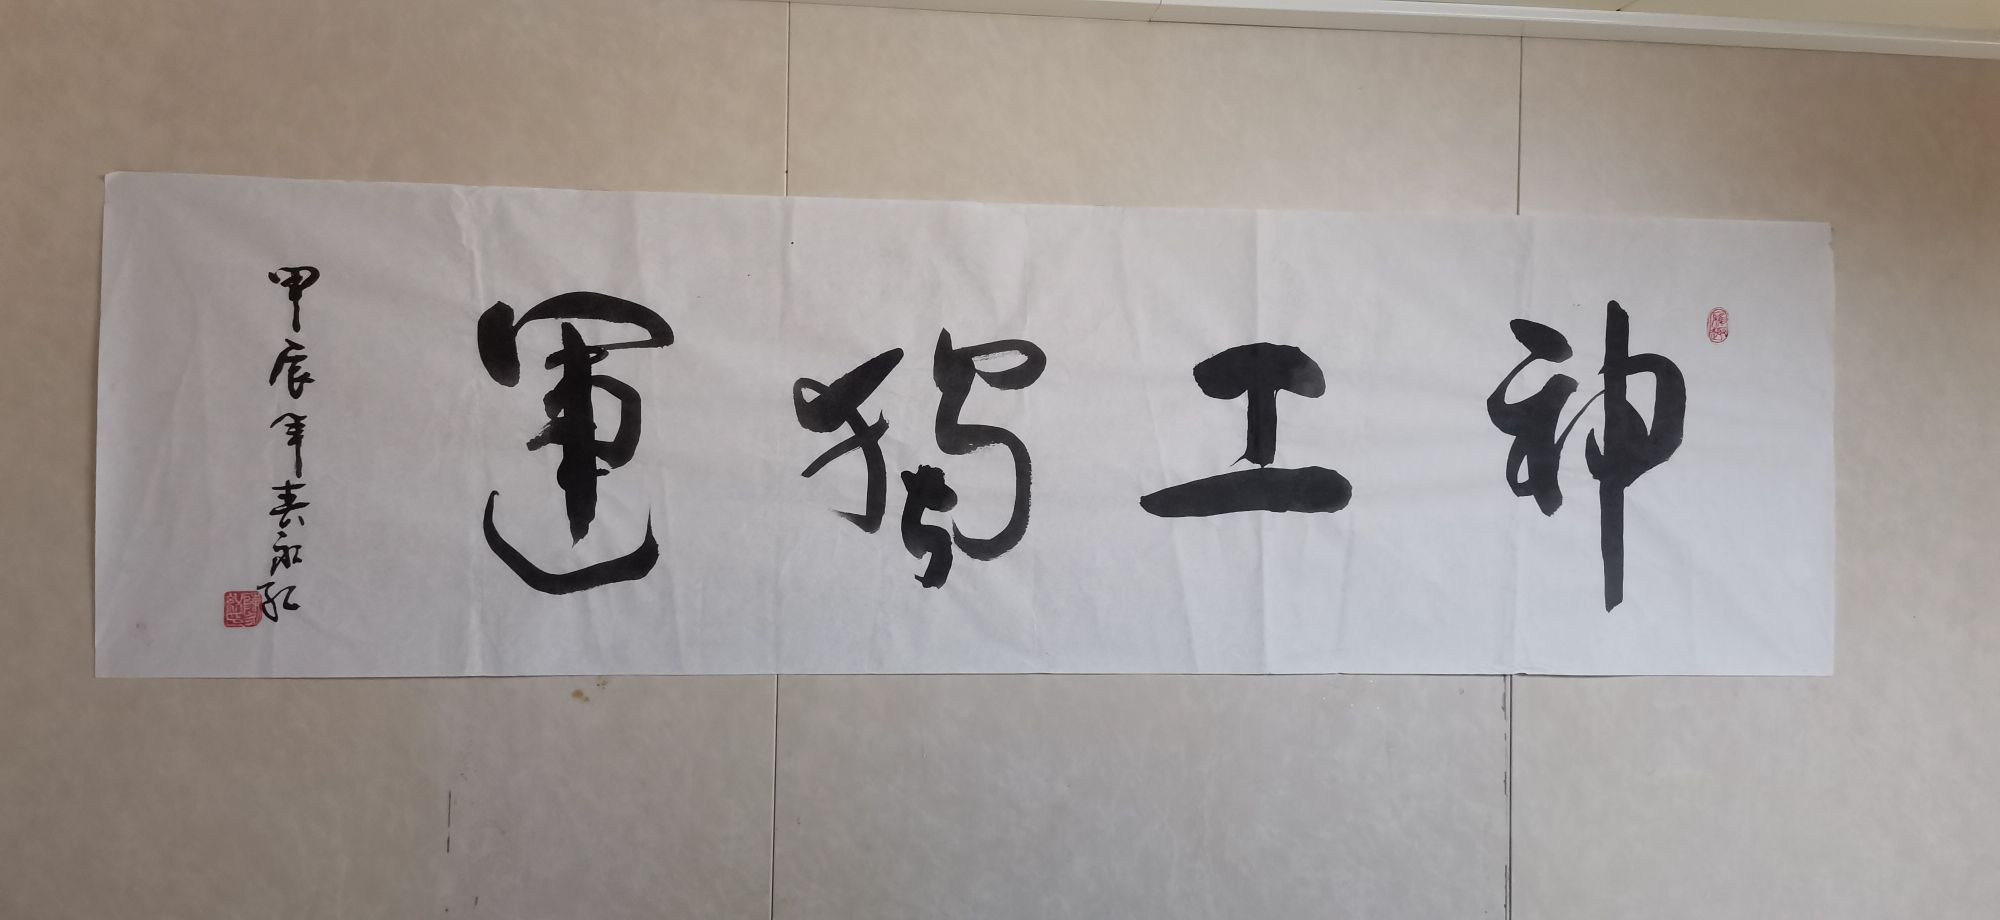 神工獨運
甲辰年春永紅